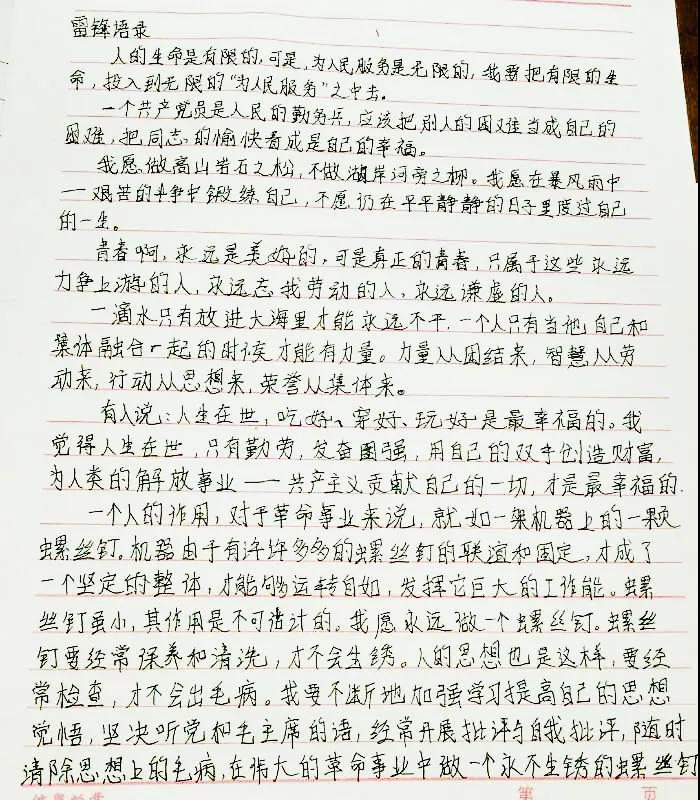 雷锋语录
人的生命是有限的,可是,为人民服务是无限的,我要把有限的生
命,投入到无限的“为人民服务”之中去。
一个共产党员是人民的勤务兵,应该把别人的困难当成自己的
困难,把同志的愉快看成是自己的幸福。
我愿做高山岩石之松,不做湖岸河旁之柳。我愿在暴风雨中
一艰苦的斗争中锻练自己,不愿仍在平平静静的日子里度过自己
的一生。
青春啊,永远是美好的,可是真正的青春,只属于这些永远
力争上游的人,永远忘我劳动的人,永远谦虚的人。
一滴水只有放进大海里才能永远不干,一个人只有当他自己和
集体融合一起的时候才能有力量。力量从团结来,智慧从劳
动来,行动从思想来,荣誉从集体来。
有人说:人生在世,吃好、穿好、玩好是最幸福的。我
觉得人生在世,只有勤劳,发奋图强,用自己的双手创造财富,
为人类的解放事业——共产主义贡献自己的一切,才是最幸福的.
一个人的作用,对于革命事业来说,就如一架机器上的一颗
螺丝钉。机器由于有许许多多的螺丝钉的联谊和固定,才成了
一个坚定的整体,才能够运转自如,发挥它巨大的工作能。螺
丝钉虽小,其作用是不可估计的。我愿永远做一个螺丝钉。螺丝
钉要经常保养和清洗,才不会生锈。人的思想也是这样,要经
常检查,才不会出毛病。我要不断地加强学习提高自己的思想
觉悟,坚决听党和毛主席的话,经常开展批评与自我批评,随时
清除思想上的毛病,在伟大的革命事业中做一个永不生锈的螺丝钉
第 页